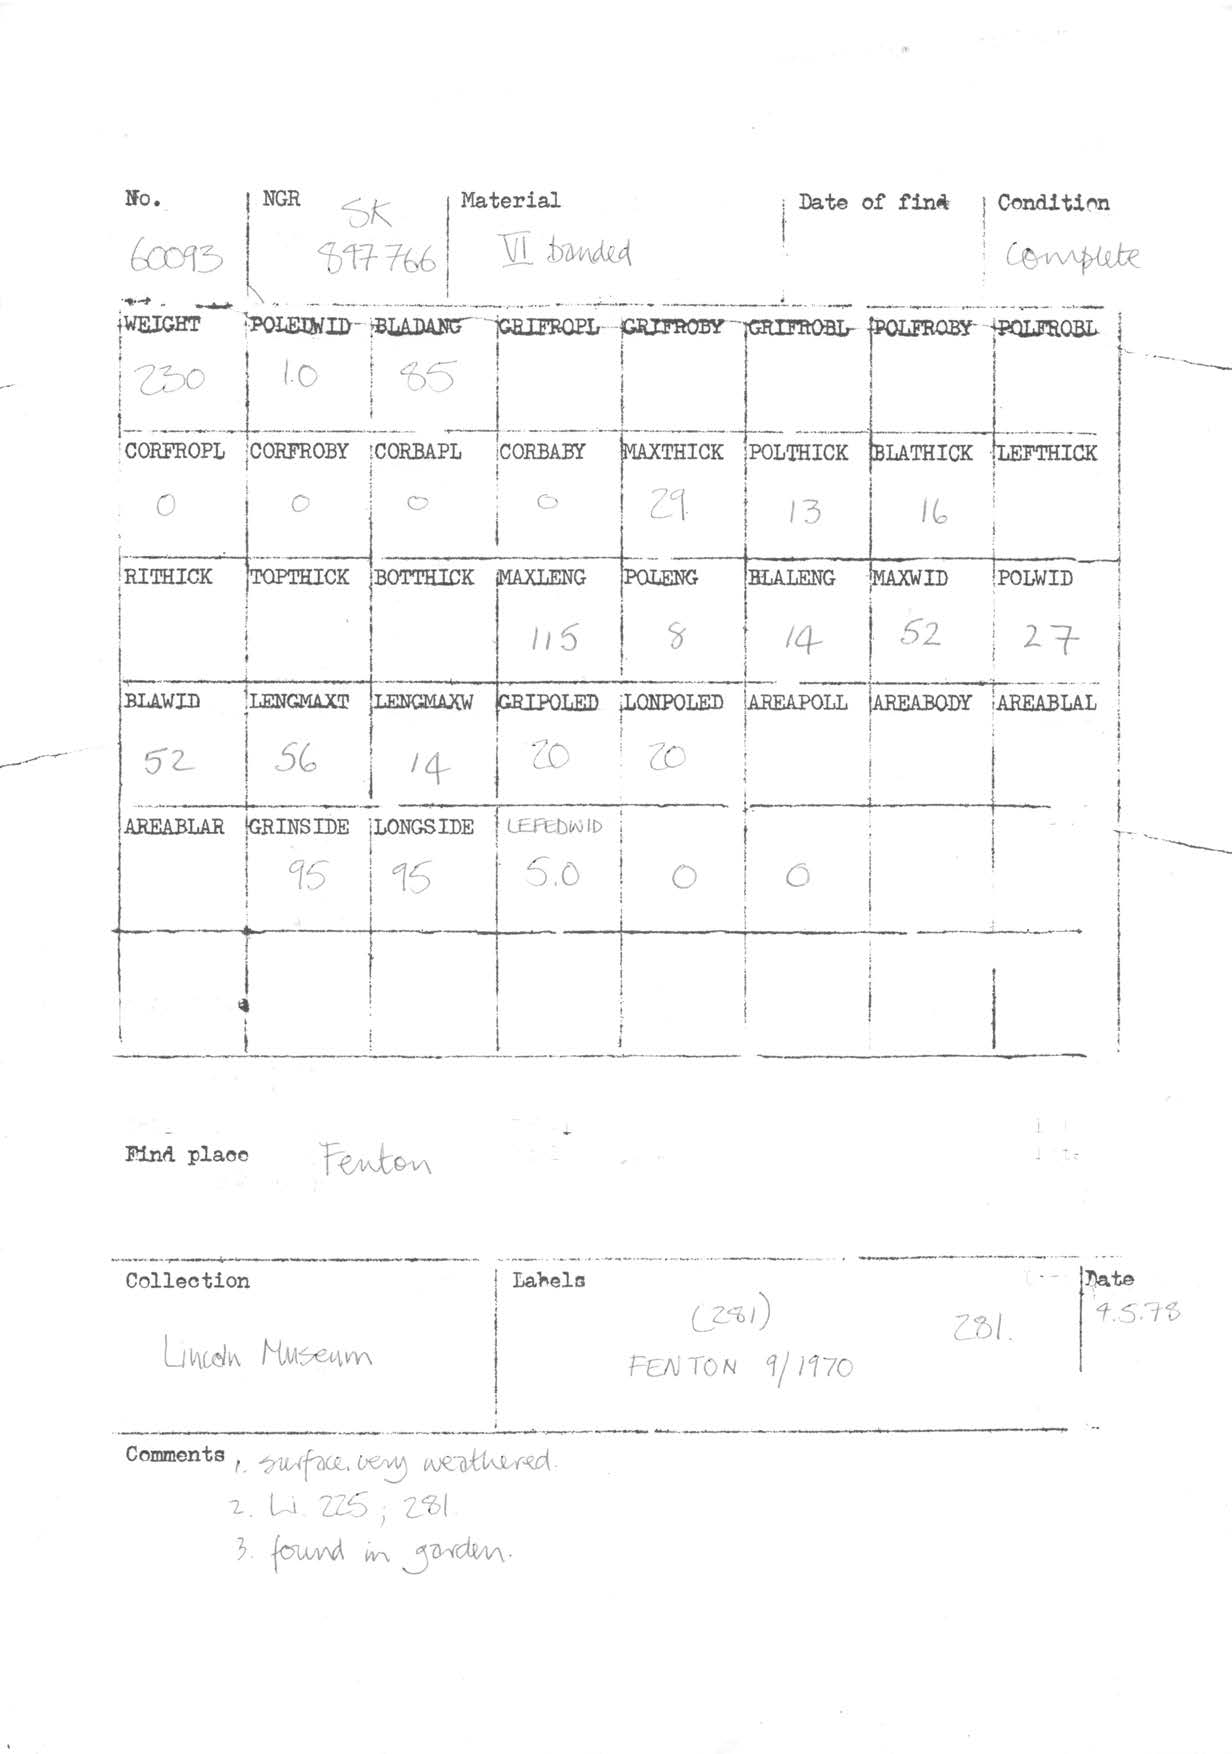 No. NGR Material Date of find Condition
SK
60093 897766 VI banded Complete
WEIGHT POLEDWID BLADANG GRIFROPL GRIFROBY GRIFROBL POLFROBY POLFROBL
230 1.0 85
CORFROPL CORFROBY CORBAPL CORBABY MAXTHICK POLTHICK BLATHICK LEFTHICK
0 0 0 0 29 13 16
RITHICK TOPTHICK BOTTHICK MAXLENG POLENG BLALENG MAXWID POLWID
115 8 14 52 27
BLAWID LENGMAXT LENGMAXW GRIPOLED LONPOLED AREAPOLL AREABODY AREABLAL
52 56 14 20 20
AREABLAR GRINSIDE LONGSIDE LEFEDWID
95 95 5.0 0 0
Find place Fenton
Collection Labels Date
(281) 281. 9.5.78
Lincoln Museum FENTON 9/1970
Comments 1. surface very weathered.
2. Li. 225; 281
3. found in garden.